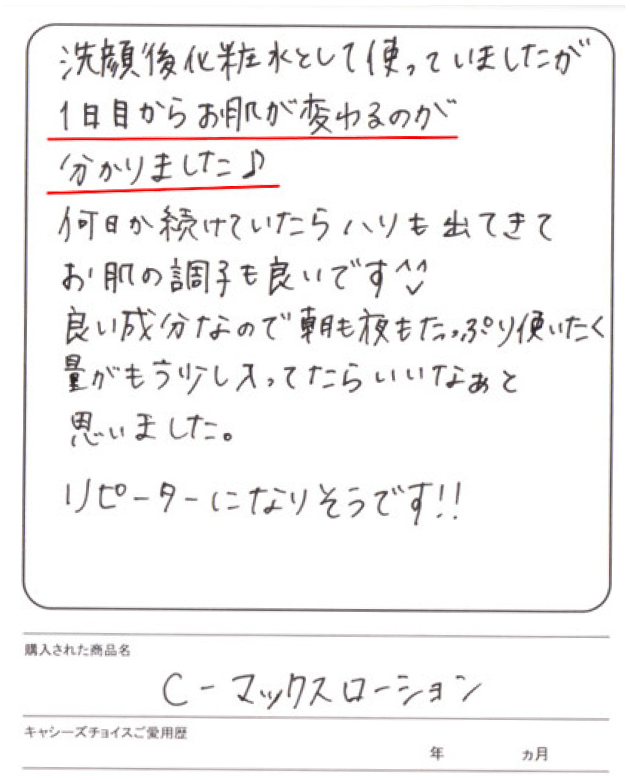 洗顔後化粧水として使っていましたが
1日目からお肌が変わるのが
分かりました♪
何日か続けていたらハリも出てきて
お肌の調子も良いです^^
良い成分なので朝も夜もたっぷり使いたく
量がもう少し入ってたらいいなぁと
思いました。
リピーターになりそうです!!
購入された商品名
C-マックスローション
キャシーズチョイスご愛用歴
年 ヵ月